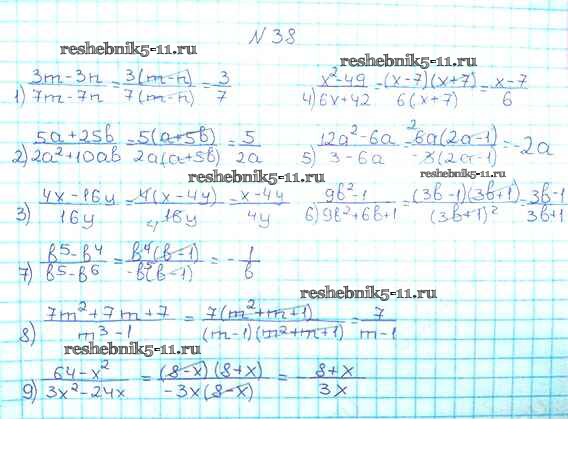 № 38
reshebnik5-11.ru
reshebnik5-11.ru
1) (3m-3n)/(7m-7n) = 3(m-n)/7(m-n) = 3/7
4) (x²-49)/(6x+42) = (x-7)(x+7)/6(x+7) = (x-7)/6
reshebnik5-11.ru
2) (5a+25b)/(2a²+10ab) = 5(a+5b)/2a(a+5b) = 5/2a
5) (12a²-6a)/(3-6a) = ²6a(2a-1)/-3(2a-1) = -2a
reshebnik5-11.ru
reshebnik5-11.ru
3) (4x-16y)/16y = 4(x-4y)/₄16y = (x-4y)/4y
6) (9b²-1)/(9b²+6b+1) = (3b-1)(3b+1)/(3b+1)² = (3b-1)/(3b+1)
7) (b⁵-b⁴)/(b⁵-b⁶) = b⁴(b-1)/-b⁵(b-1) = -1/b
reshebnik5-11.ru
8) (7m²+7m+7)/(m³-1) = 7(m²+m+1)/(m-1)(m²+m+1) = 7/(m-1)
reshebnik5-11.ru
9) (64-x²)/(3x²-24x) = (8-x)(8+x)/-3x(8-x) = (8+x)/3x